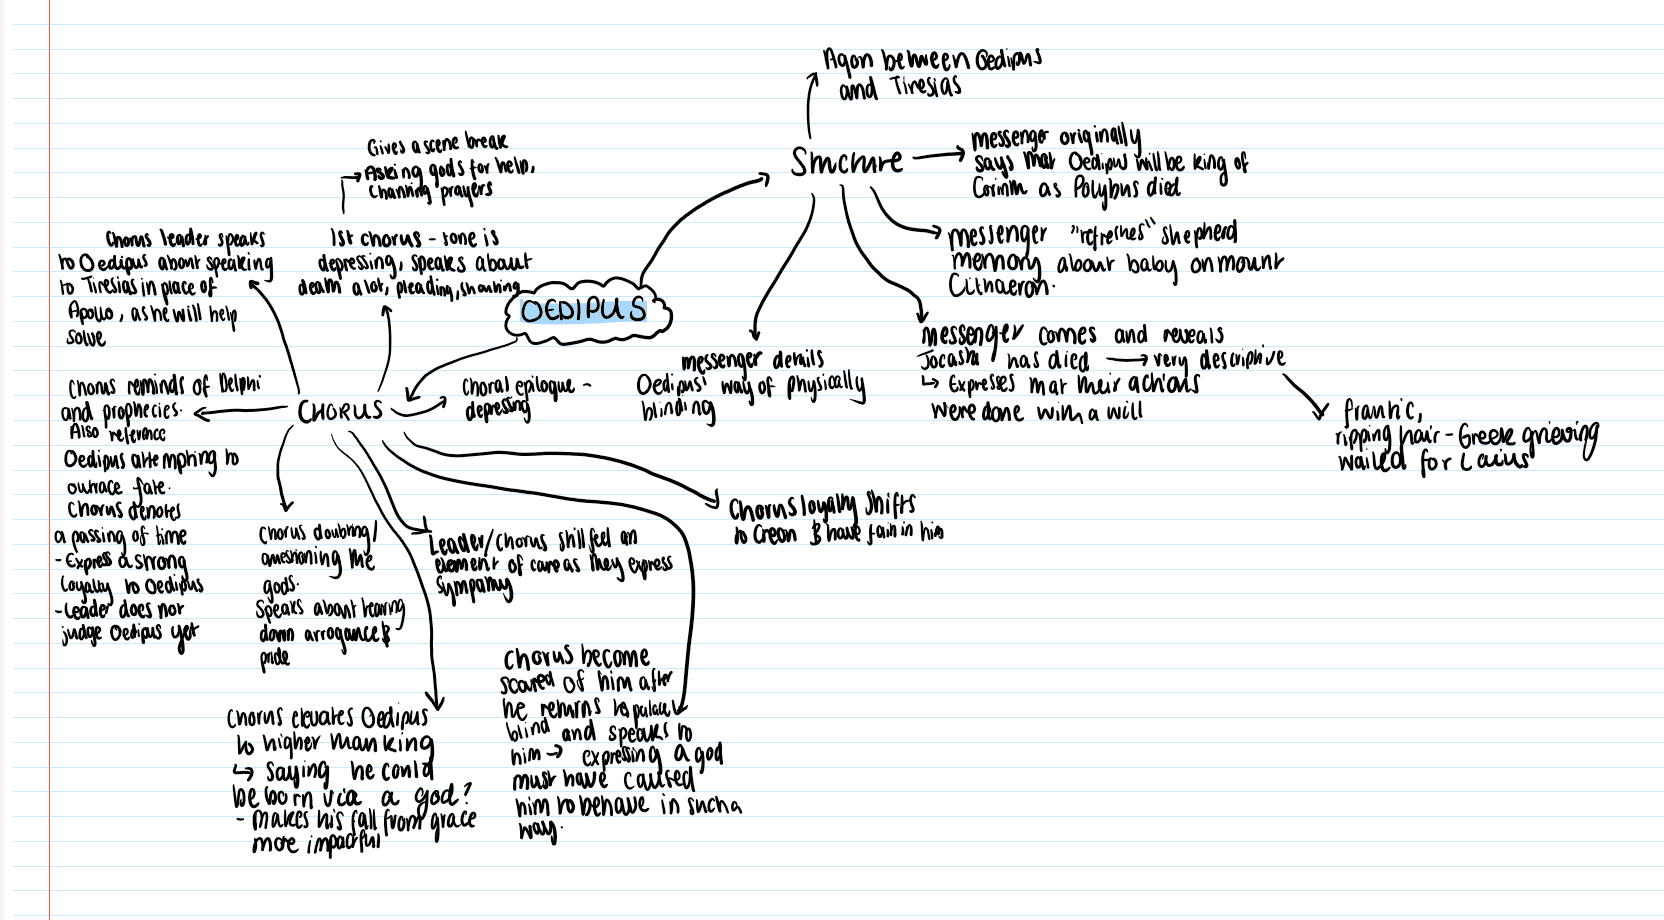 OEDIPUS
Structure
Agon between Oedipus
and Tiresias
messenger originally
says that Oedipus will be king of
Corinth as Polybus died
messenger "refreshes" shepherd
memory about baby on mount
Cithaeron.
messenger comes and reveals
Jocasta has died → very descriptive
↳ Expresses that their actions
were done with a will
frantic,
ripping hair - Greek grieving
wailed for Laius
messenger details
Oedipus' way of physically
blinding
CHORUS
Gives a scene break
→ Asking gods for help,
chanting prayers
1st chorus - tone is
depressing, speaks about
death a lot, pleading, shouting
Chorus leader speaks
to Oedipus about speaking
to Tiresias in place of
Apollo, as he will help
solve
Chorus reminds of Delphi
and prophecies.
Also reference
Oedipus attempting to
outrace fate.
Chorus denotes
a passing of time
- Express a strong
loyalty to Oedipus
- Leader does not
judge Oedipus yet
Chorus doubting/
questioning the
gods.
Speaks about tearing
down arrogance &
pride
Chorus elevates Oedipus
to higher than king
↳ Saying he could
be born via a god?
- makes his fall from grace
more impactful
Leader/Chorus still feel an
element of care as they express
sympathy
Chorus become
scared of him after
he returns to palace
blind and speaks to
him → expressing a god
must have caused
him to behave in such a
way.
Chorus loyalty shifts
to Creon & have faith in him
Choral epilogue -
depressing